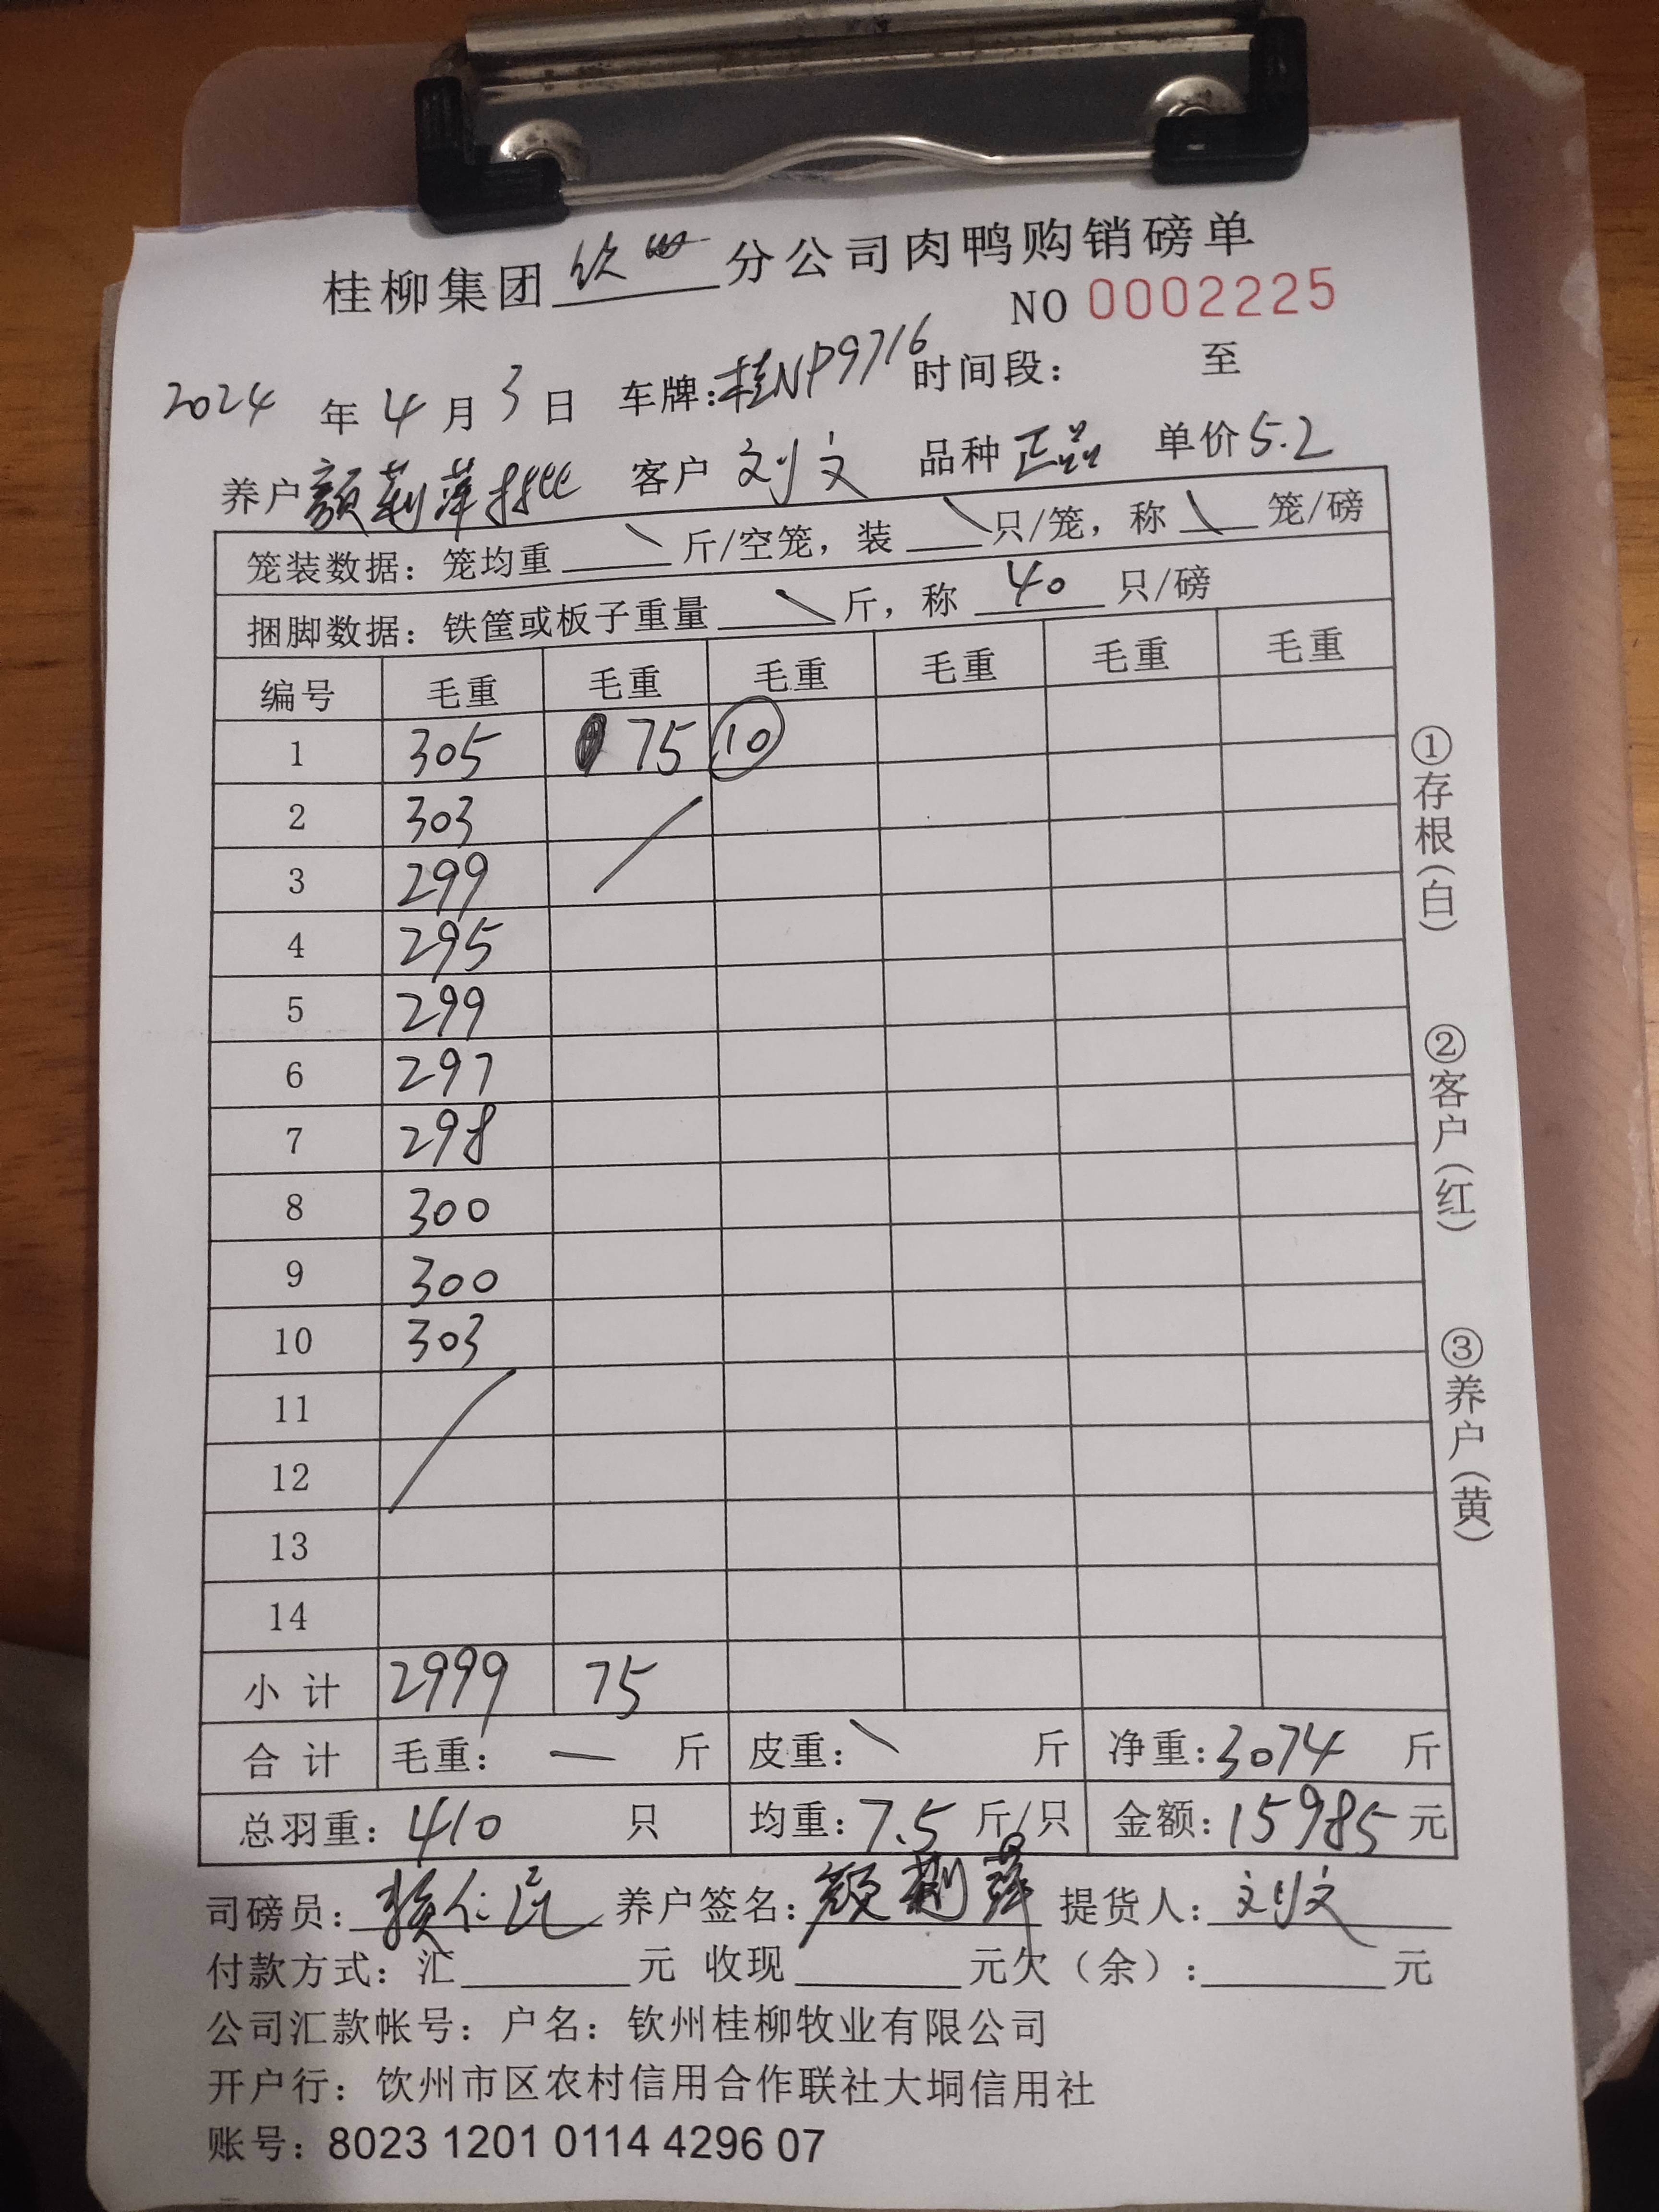 桂柳集团 钦州 分公司肉鸭购销磅单
NO 0002225
2024 年 4 月 3 日 车牌:桂NP9716 时间段: 至
养户 颜荆萍 客户 刘文 品种 正品 单价 5.2
笼装数据: 笼均重 \ 斤/空笼, 装 \ 只/笼, 称 \ 笼/磅
捆脚数据: 铁筐或板子重量 \ 斤, 称 40 只/磅
编号 毛重 毛重 毛重 毛重 毛重 毛重
1 305 75 ⑩
2 303
3 299
4 295
5 299
6 297
7 298
8 300
9 300
10 303
11
12
13
14
小计 2999 75
合计 毛重: — 斤 皮重: \ 斤 净重:3074 斤
总羽重: 410 只 均重:7.5 斤/只 金额:15985元
司磅员: 养户签名:颜荆萍 提货人:刘文
付款方式: 汇 元 收现 元欠(余): 元
公司汇款帐号: 户名: 钦州桂柳牧业有限公司
开户行: 钦州市区农村信用合作联社大垌信用社
账号: 8023 1201 0114 4296 07
①存根(白)
②客户(红)
③养户(黄)